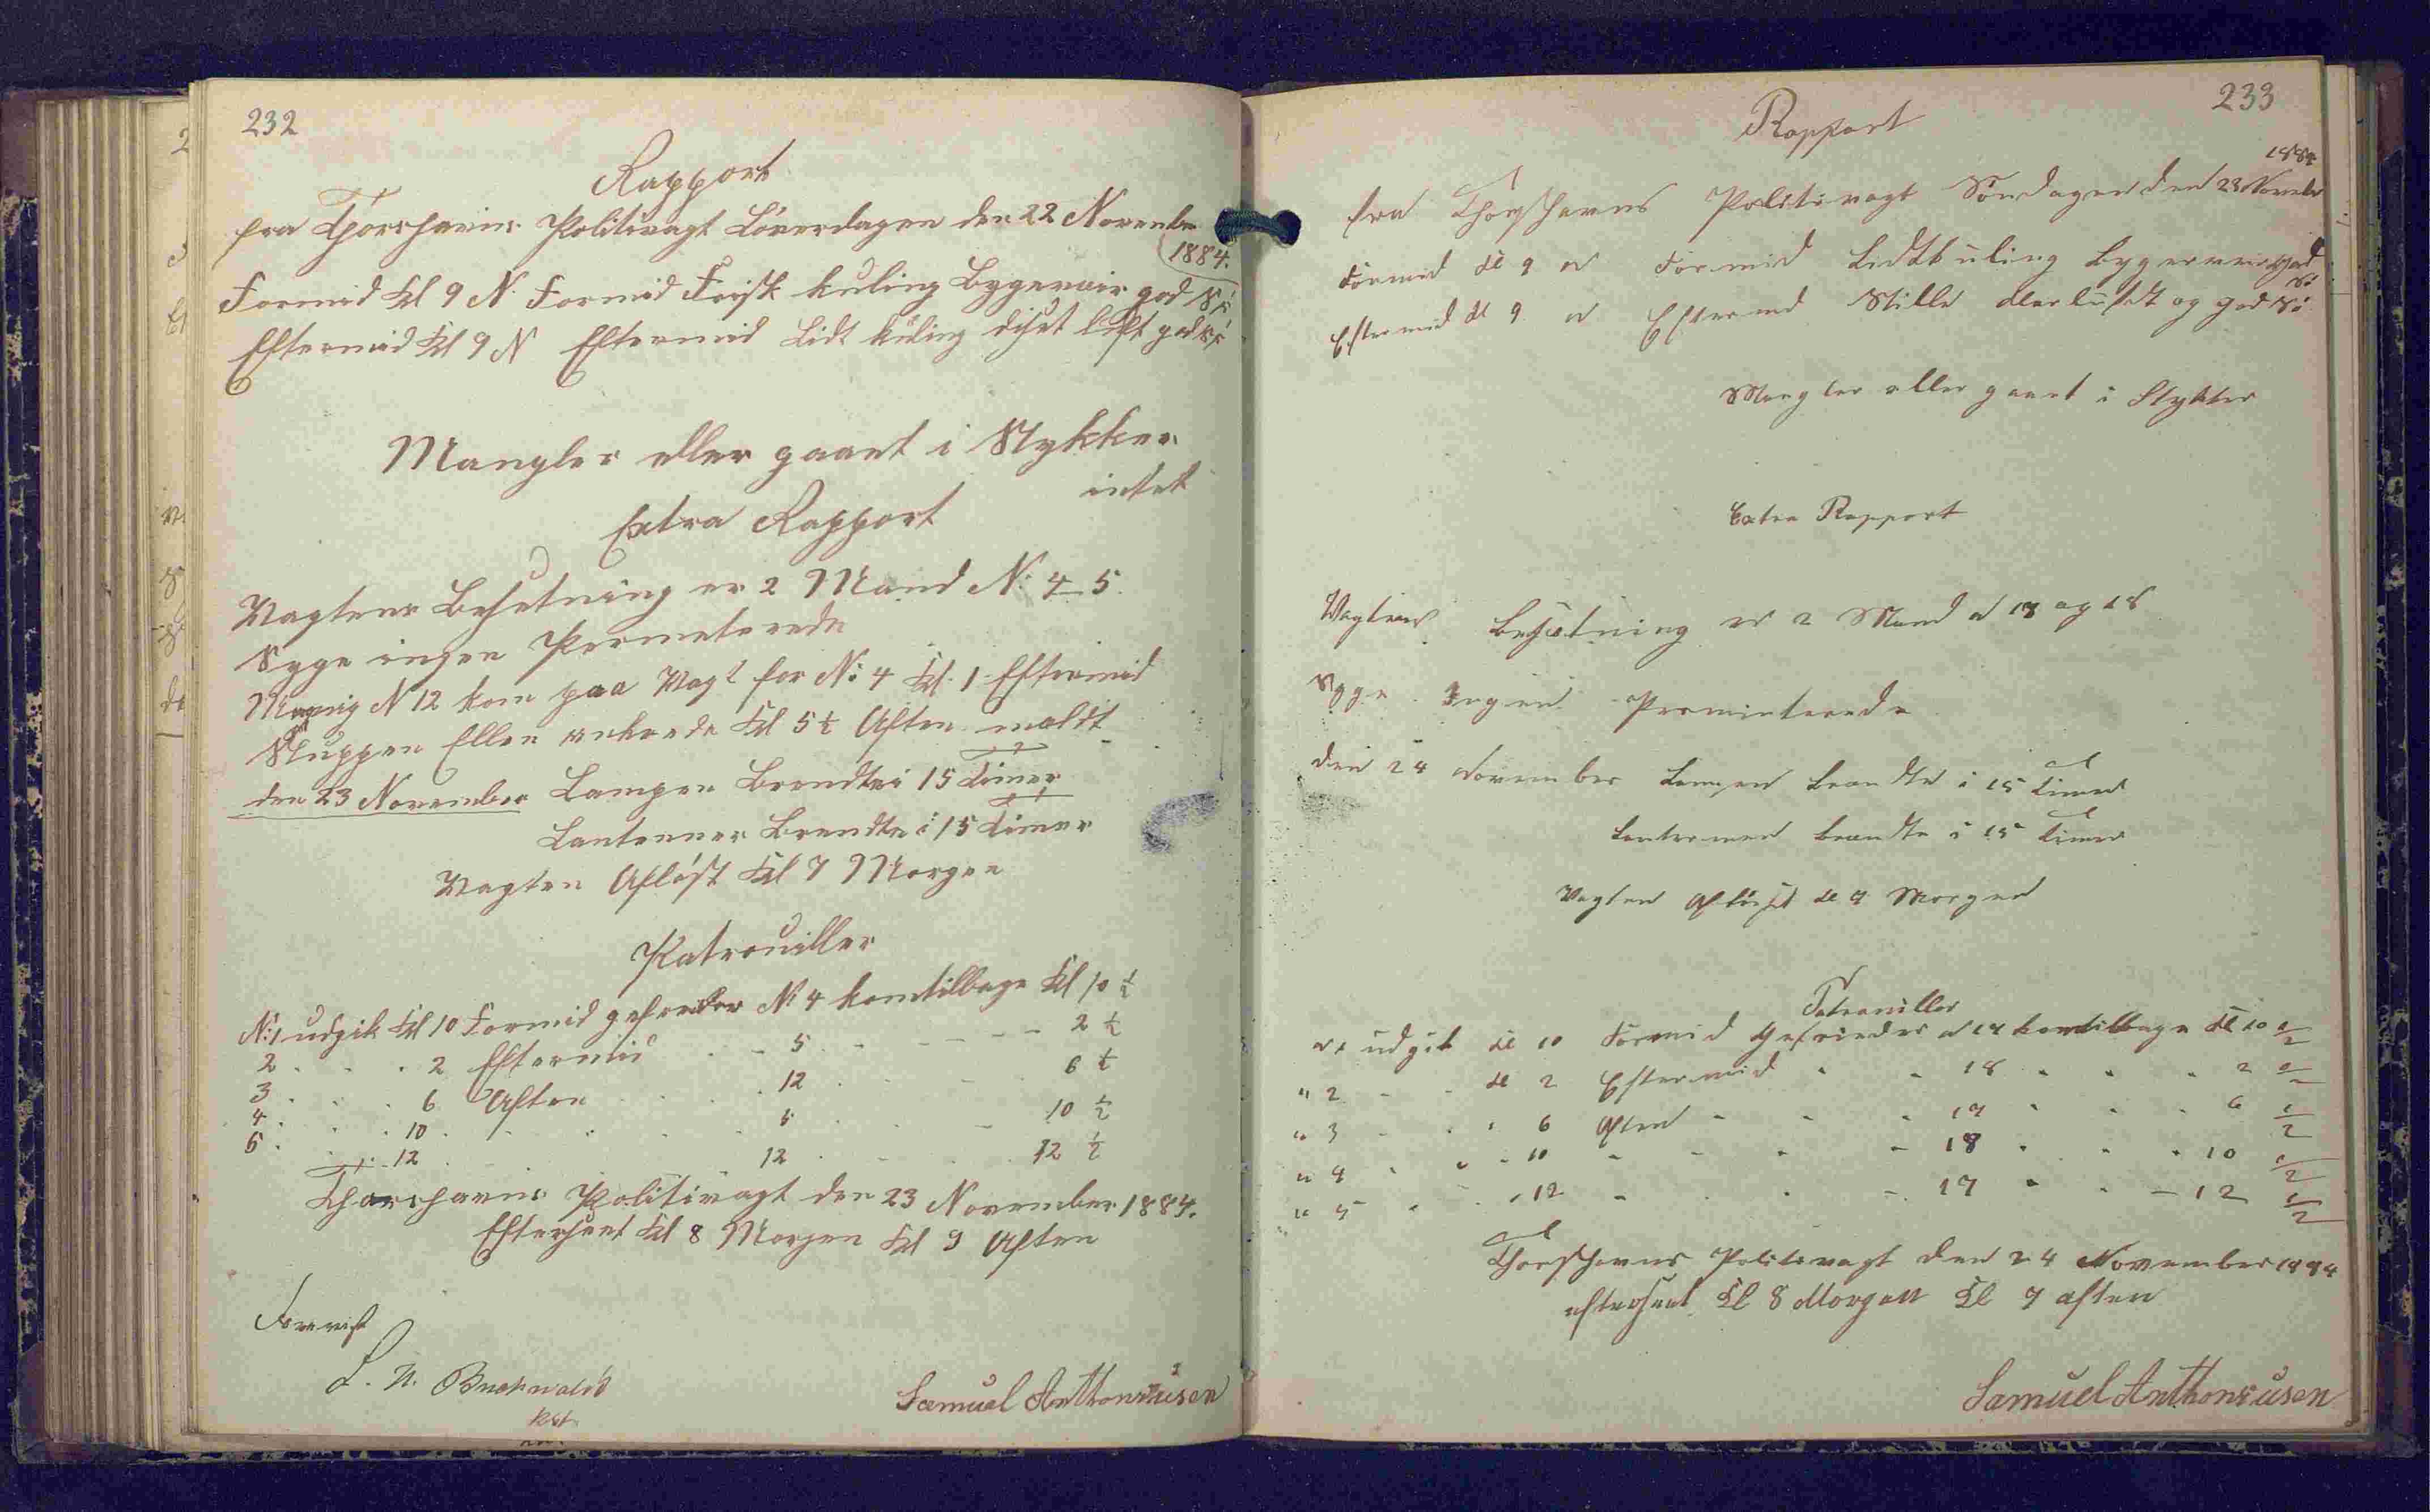 232
Rapport
fra Thorshavns Politivagt Löverdagen den 22 November
1884.
Formid Kl 9 N. Formid Frisk kuling Bygeveir god Sö
Eftermid Kl 9 N Eftermid Lidt kuling diset luft god sö
Mangler eller gaaet i Stykker
intet
Extra Rapport
Vagtens Besetning er 2 Mand N: 4_5.
Syge ingen Permeterede
N 12 kom paa Vagt for No 4 Kl. 1 Eftermid
Sluppen Ellen ankrede Kl 5½ Aften meldt
den 23 November Lampen Brendte i 15 Timer
Lanternen Brendte i 15 Timer
Vagten Aflöst Kl 7 Morgen
Patrouiller
N:1 udgik Kl 10 Formid gefreider No 4 kom tilbage Kl 10 ½
2 . . . 2 Eftermid . - 5 . - - - 2 ½
3 . . . 6 Aften . . . 12 . . - . 6 ½
4 . . . 10 . . . . 5 . . - 10 ½
5 . . . 12 . . . 12 . - . 12 ½
Thorshavns Politivagt den 23 November 1884.
Efterseet Kl 8 Morgen Kl 9 Aften
Forevist
Buchwaldt
kst.
Samuel Anthoniusen
233
Rapport
1884
fra Thorshavns Politivagt Söndagen den 23 November
Formid Kl 9 N Formid Lidt kuling Bygerveir god
Sö
Eftermid Kl 9 N Eftermd Stille klar luft og god Sö
Mangler eller gaaet i Stykker
Extra Rapport
Vagtens Besætning er 2 Mand N 17 og 18
Syge Ingen Perminterede
den 24 November Lampen brændte i 15 Timer
Lanternen brændte i 15 Timer
Vagten Aflöst Kl 7 Morgen
Patrouiller
N 1 udgik Kl 10 Formid Gefreider N 17 kom tilbage Kl 10 ½
" 2 - - Kl 2 Eftermid - - 18 - - - 2 ½
" 3 - - - 6 Aften - - - 17 - - - 6 ½
" 4 - - - 10 - - - - 18 - - - 10 ½
" 5 - - - 12 - - - 17 - - - 12 ½
Thorshavns Politivagt den 24 November 1884
efterseet Kl 8 Morgen Kl 9 aften
Samuel Anthoniusen